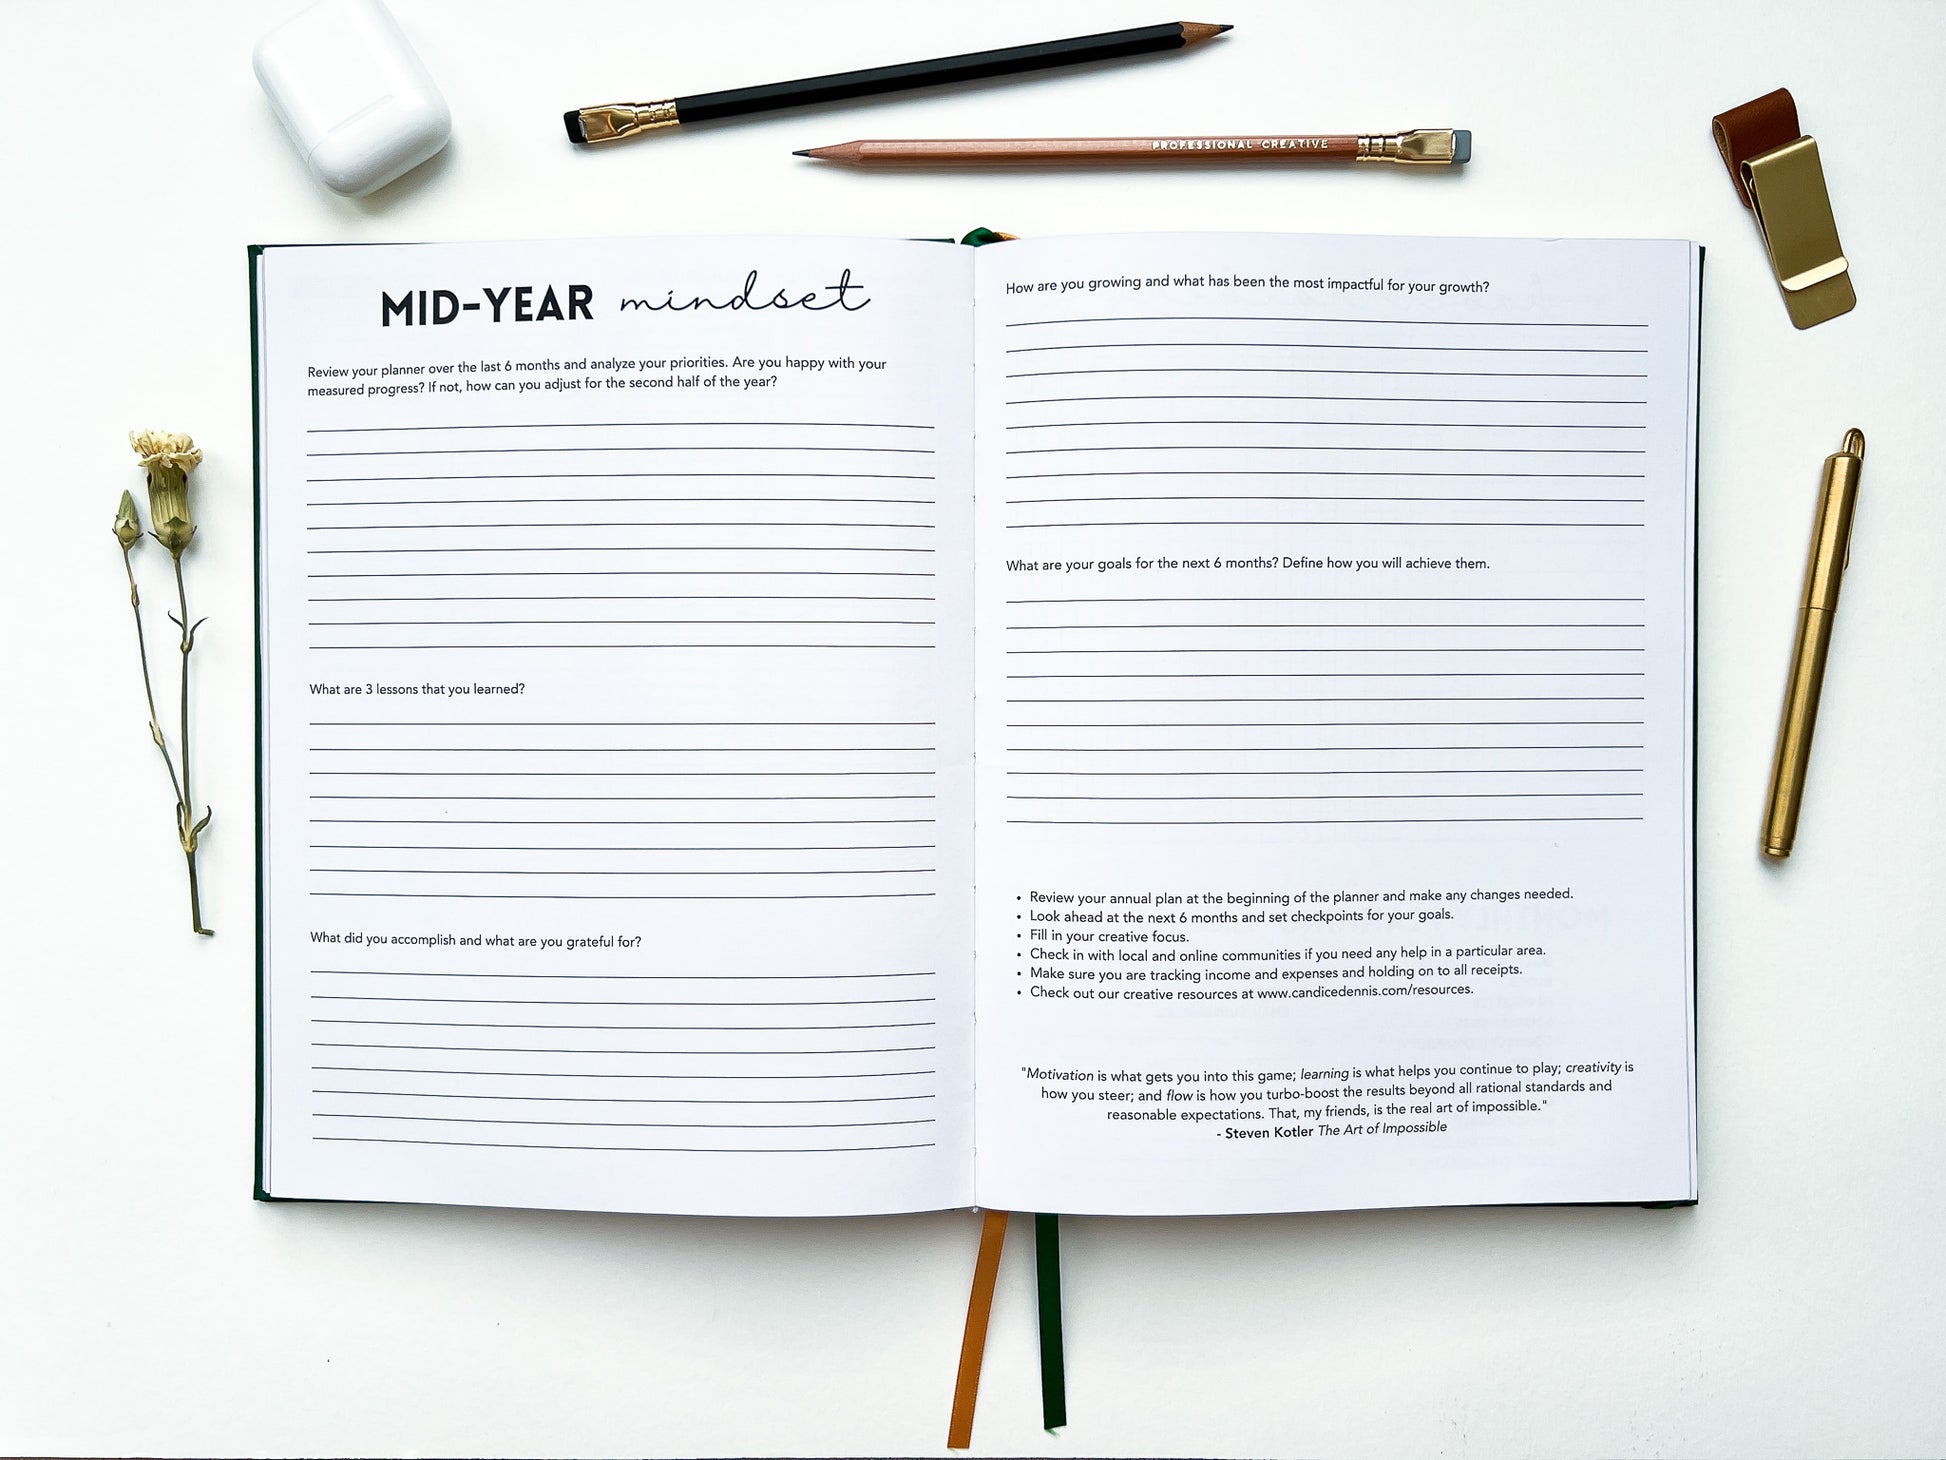 PROFESSIONAL CREATIVE
MID-YEAR mindset
Review your planner over the last 6 months and analyze your priorities. Are you happy with your
measured progress? If not, how can you adjust for the second half of the year?
What are 3 lessons that you learned?
What did you accomplish and what are you grateful for?
How are you growing and what has been the most impactful for your growth?
What are your goals for the next 6 months? Define how you will achieve them.
• Review your annual plan at the beginning of the planner and make any changes needed.
• Look ahead at the next 6 months and set checkpoints for your goals.
• Fill in your creative focus.
• Check in with local and online communities if you need any help in a particular area.
• Make sure you are tracking income and expenses and holding on to all receipts.
• Check out our creative resources at www.candicedennis.com/resources.
"Motivation is what gets you into this game; learning is what helps you continue to play; creativity is
how you steer; and flow is how you turbo-boost the results beyond all rational standards and
reasonable expectations. That, my friends, is the real art of impossible."
- Steven Kotler The Art of Impossible